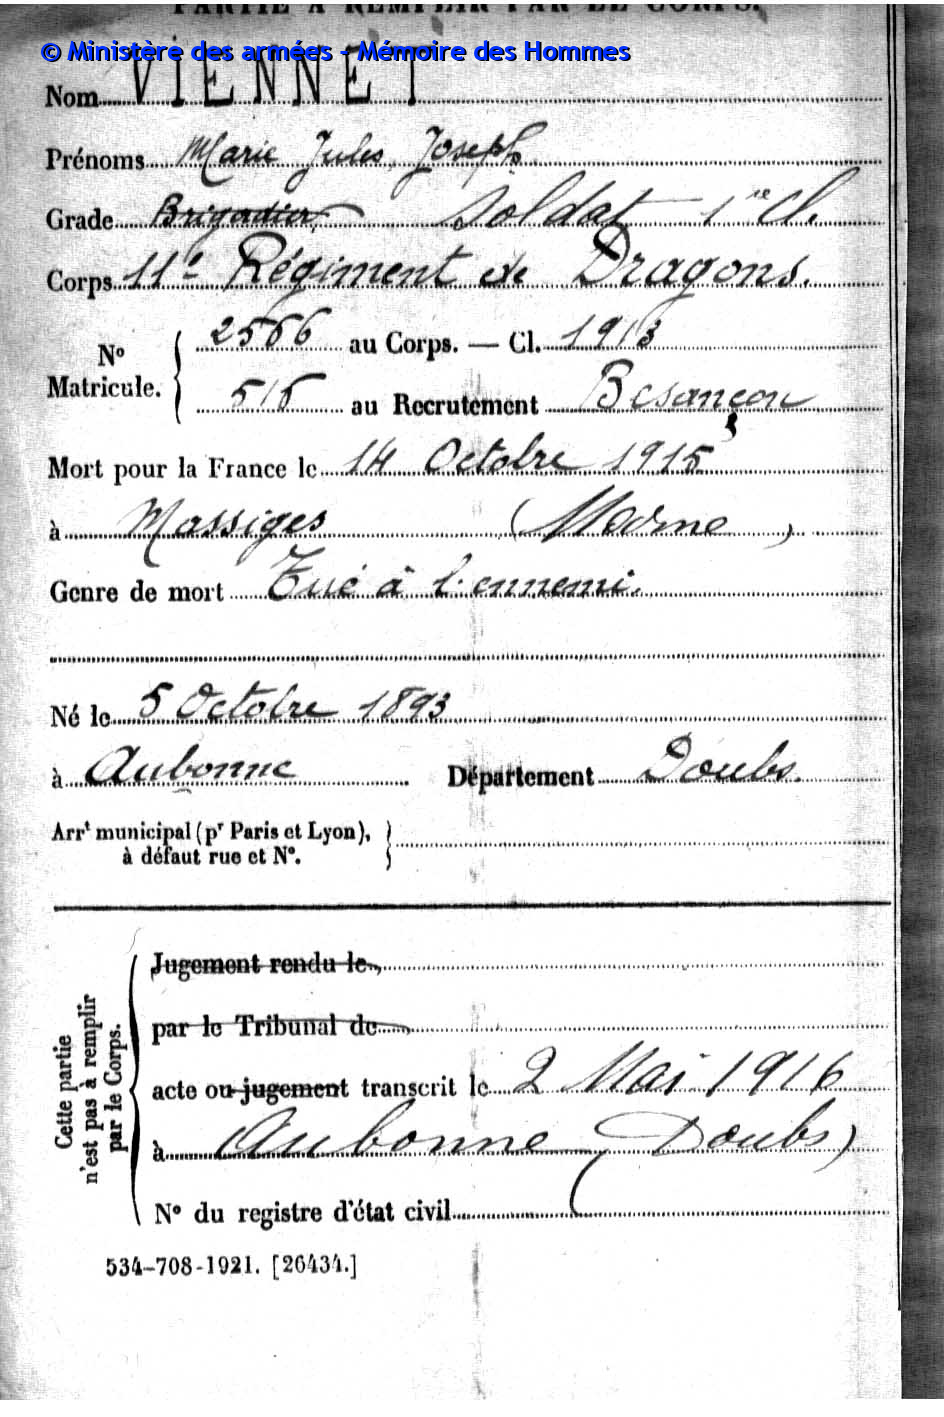 PARTIE À REMPLIR PAR LE CORPS.
© Ministère des armées - Mémoire des Hommes
Nom VIENNET
Prénoms Marie Jules Joseph
Grade Brigadier Soldat 1re Cl.
Corps 11e Régiment de Dragons.
No Matricule. { 2566 au Corps. — Cl. 1913
515 au Recrutement Besançon
Mort pour la France le 14 Octobre 1915
à Massiges (Marne)
Genre de mort Tué à l'ennemi.
Né le 5 Octobre 1893
à Aubonne Département Doubs.
Arrt municipal (pr Paris et Lyon),
à défaut rue et No.
Cette partie n'est pas à remplir par le Corps.
Jugement rendu le
par le Tribunal de
acte ou jugement transcrit le 2 Mai 1916
à Aubonne (Doubs)
No du registre d'état civil
534-708-1921. [26434.]